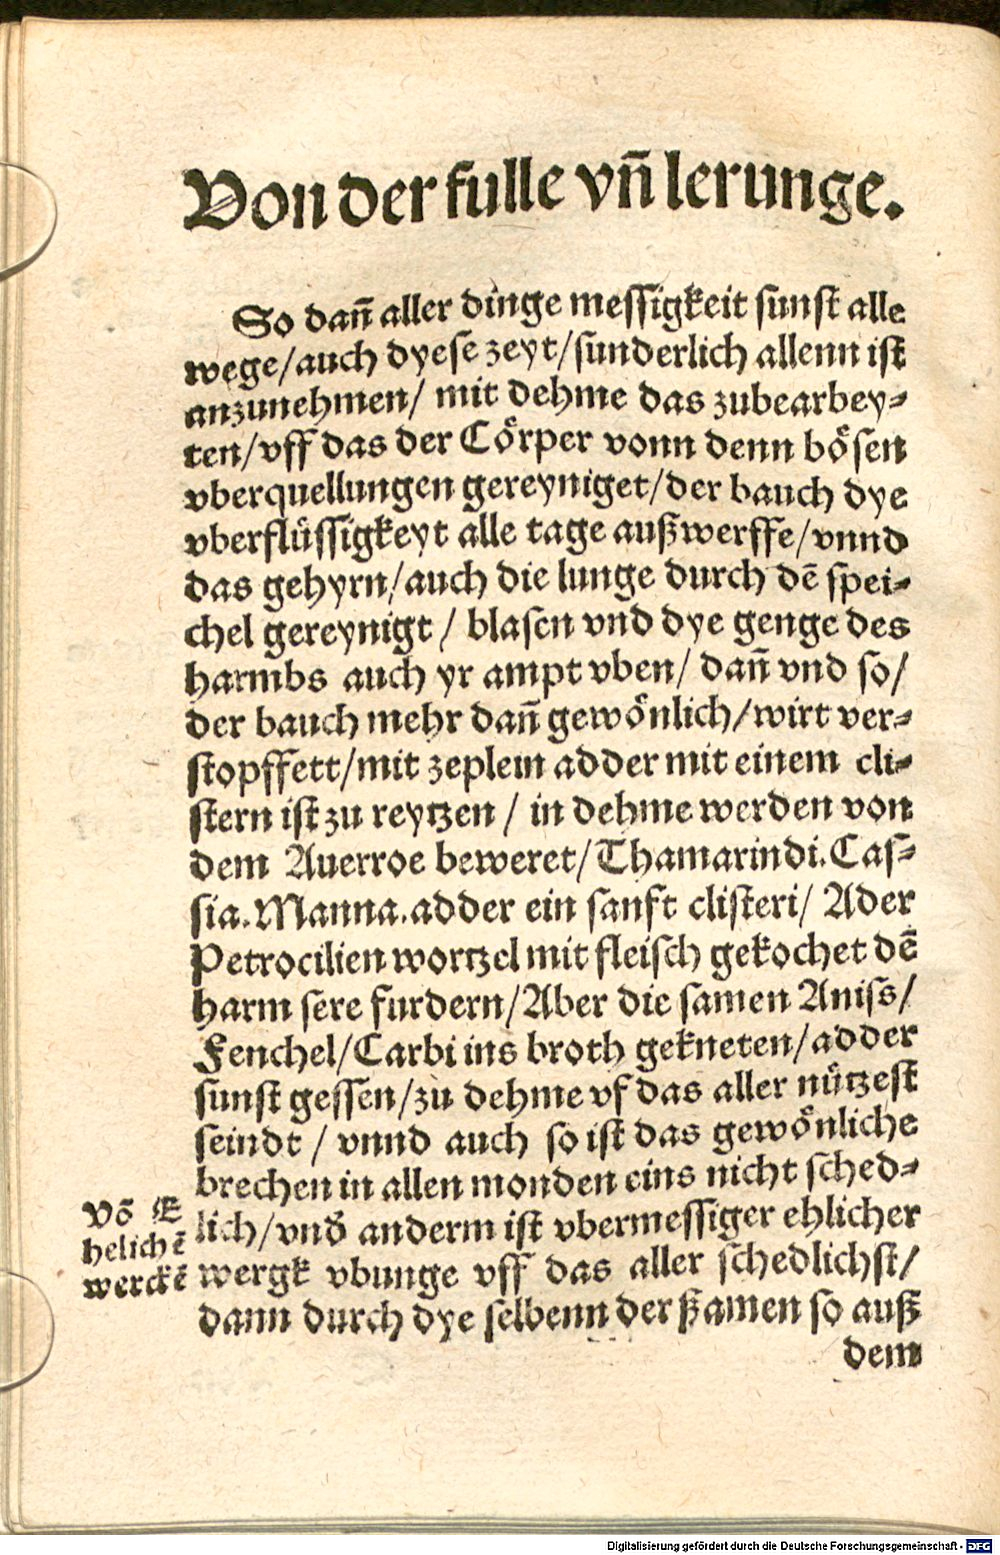 Von der fulle vñ lerunge.
So dañ aller dinge messigkeit sunst alle
wege/auch dyese zeyt/sunderlich allenn ist
anzunehmen/ mit dehme das zubearbey-
ten/vff das der Cörper vonn denn bösen
vberquellungen gereyniget/der bauch dye
vberflüssigkeyt alle tage außwerffe/vnnd
das gehyrn/auch die lunge durch dē spei-
chel gereynigt / blasen vnd dye genge des
harmbs auch yr ampt vben/ dañ vnd so/
der bauch mehr dañ gewönlich/wirt ver-
stopffett/mit zeplein adder mit einem cli-
stern ist zu reytzen / in dehme werden von
dem Auerroe beweret/Thamarindi.Cas-
sia.Manna.adder ein sanft clisteri/ Ader
Petrocilien wortzel mit fleisch gekochet dē
harm sere furdern/Aber die samen Aniss/
Fenchel/Carbi ins broth gekneten/adder
sunst gessen/zu dehme vf das aller nützest
seindt / vnnd auch so ist das gewönliche
brechen in allen monden eins nicht sched-
lich/vnd anderm ist vbermessiger ehlicher
wergk vbunge vff das aller schedlichst/
dann durch dye selbenn der ßamen so auß
dem
Vō E
helichē
werckē
Digitalisierung gefördert durch die Deutsche Forschungsgemeinschaft - DFG